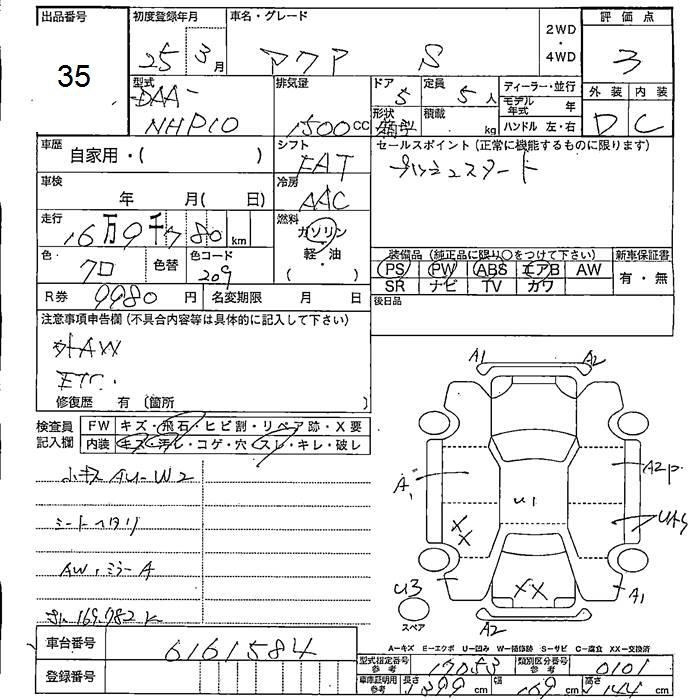 出品番号 初度登録年月 車名・グレード 評価点
35
25 3月 アクア S 2WD・4WD 3
型式 排気量 ドア 定員 ディーラー・並行 外装 内装
DAA- 5 5人 モデル年式 年
NHP10 1500cc 形状 積載 kg ハンドル 左・右 D C
車歴 自家用・( ) シフト FAT セールスポイント(正常に機能するものに限ります)
プッシュスタート
車検 年 月( 日) 冷房 AAC
走行 16万9千780km 燃料 ガソリン・軽・油 ( )
色 クロ 色替 色コード 209
装備品(純正品に限り○をつけて下さい) 新車保証書
PS PW ABS エアB AW 有・無
SR ナビ TV カワ
R券 9980円 名変期限 月 日 後日品
注意事項申告欄(不具合内容等は具体的に記入して下さい)
社外AW
ETC.
修復歴 有 〔箇所 〕
検査員記入欄 FW キズ・飛石・ヒビ割・リペア跡・X要
内装 キズ・汚レ・コゲ・穴・スレ・キレ・破レ
小キズ AU-W2
シートヘタリ
AW・ミラーA
169.782K
A1 A2
A1 U1 A2P
XX
XX
U3 スペア A2 A1
A-キズ E-エクボ U-凹み W-補修跡 S-サビ C-腐食 XX-交換済
車台番号 6161584
登録番号
型式指定番号 参考 17053 類別区分番号 参考 0101
車庫証明用 参考 長さ 399cm 幅 169cm 高さ 144cm